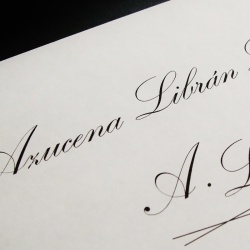 Azucena Librán
A. L